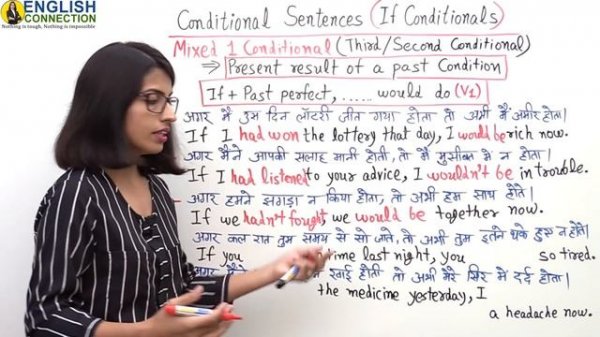 ENGLISH
CONNECTION
Nothing is tough, Nothing is impossible
Conditional Sentences (If Conditionals)
Mixed 1 Conditional (Third/Second Conditional)
⇒ Present result of a past Condition
If + Past perfect, ...... would do (V1)
अगर मैं उस दिन लॉटरी जीत गया होता तो अभी मैं अमीर होता।
If I had won the lottery that day, I would be rich now.
अगर मैंने आपकी सलाह मानी होती, तो मैं मुसीबत में न होता।
If I had listened to your advice, I wouldn't be in trouble.
अगर हमने झगड़ा न किया होता, तो अभी हम साथ होते।
If we hadn't fought, we would be together now.
अगर कल रात तुम समय से सो जाते, तो अभी तुम इतने थके हुए न होते।
If you time last night, you so tired.
अगर मैंने खाई होती तो अभी मेरे सिर में दर्द होता।
the medicine yesterday, I
a headache now.